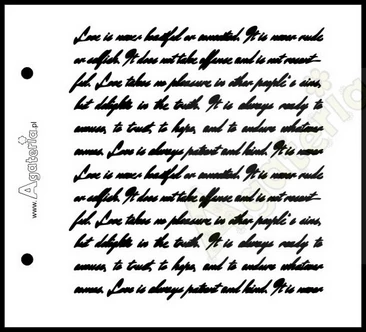 Love is never boastful or conceited. It is never rude
or selfish. It does not take offence and is not resent
ful. Love takes no pleasure in other people's sins,
but delights in the truth. It is always ready to
excuse, to trust, to hope, and to endure whatever
comes. Love is always patient and kind. It is never
Love is never boastful or conceited. It is never rude
or selfish. It does not take offence and is not resent
ful. Love takes no pleasure in other people's sins,
but delights in the truth. It is always ready to
excuse, to trust, to hope, and to endure whatever
comes. Love is always patient and kind. It is never
www.Agateria.pl
Agateria